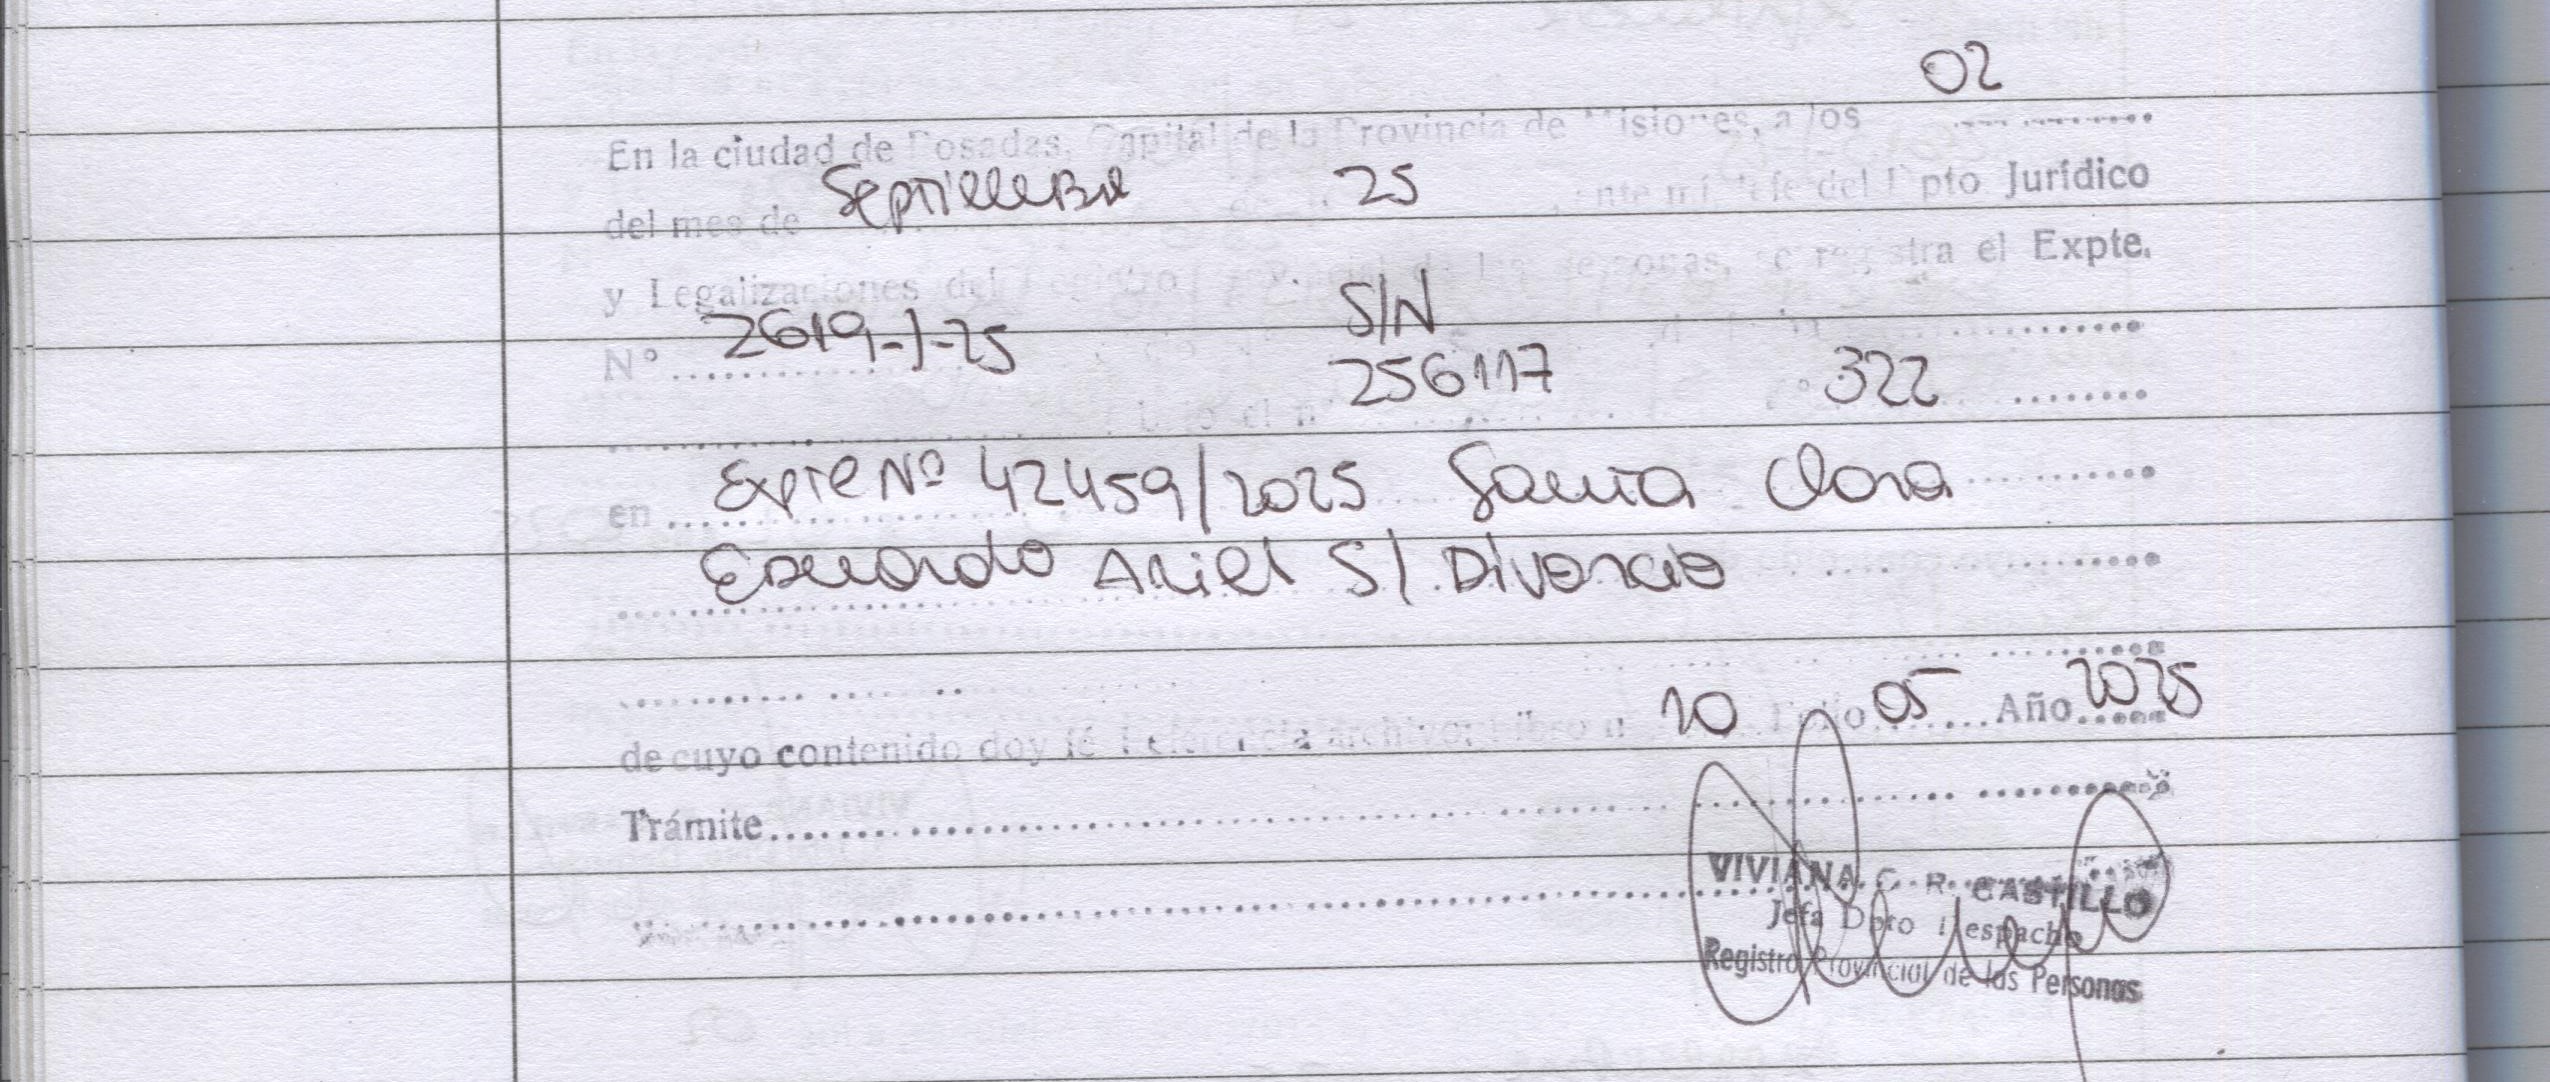 02
En la ciudad de Posadas, Capital de la Provincia de Misiones, a los
del mes de Septiembre 25 ante mí Jefe del Dpto Jurídico
y Legalizaciones del Registro Provincial de las Personas, se registra el Expte.
S/N
Nº 2619-J-25
256117 322
en Expte Nº 42459/2025 Santa Clara
Eduardo Ariel S/ Divorcio
de cuyo contenido doy fé Referencia archivo: Libro nº 10 Folio 05 Año 2025
Trámite
VIVIANA C. R. CASTILLO
Jefa Dpto Despacho
Registro Provincial de las Personas